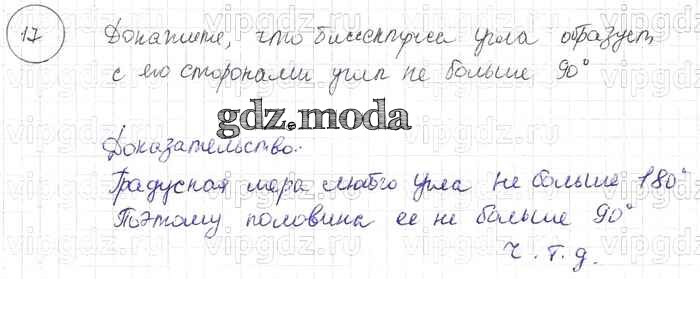 17 Докажите, что биссектриса угла образует
с его сторонами угл не больше 90°
gdz.moda
Доказательство:
Градусная мера любого угла не больше 180°
Поэтому половина ее не больше 90°
ч.т.д.
vipgdz.ru